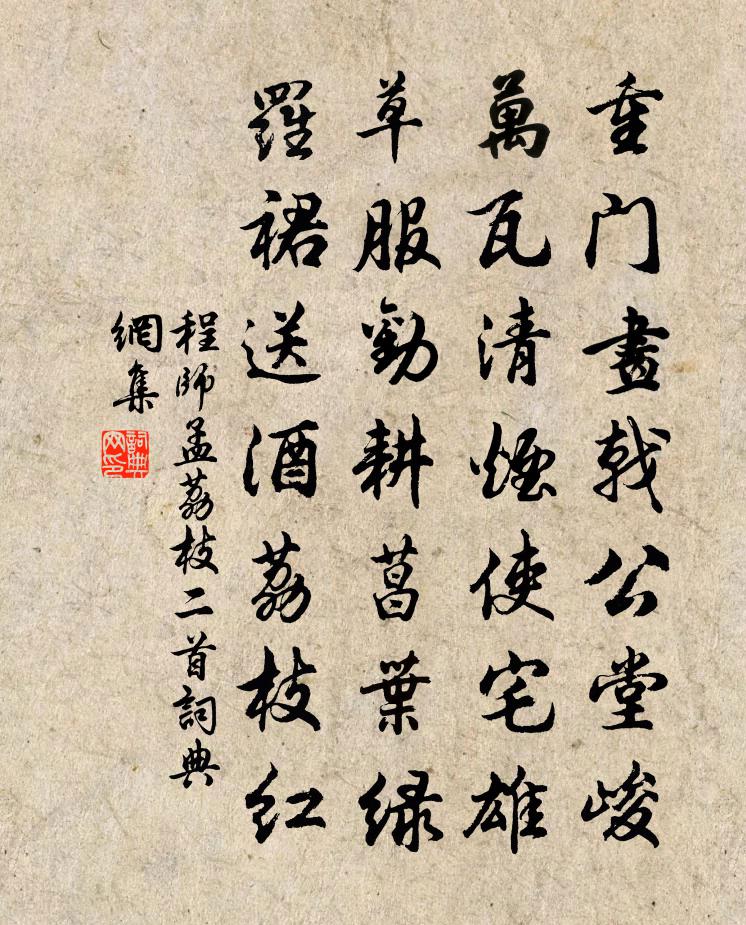 重门畫戟公堂峻
萬瓦清煙使宅雄
草服勸耕菖葉绿
羅裙送酒荔枝红
程師孟荔枝二首詞典
網集
詞典
网印